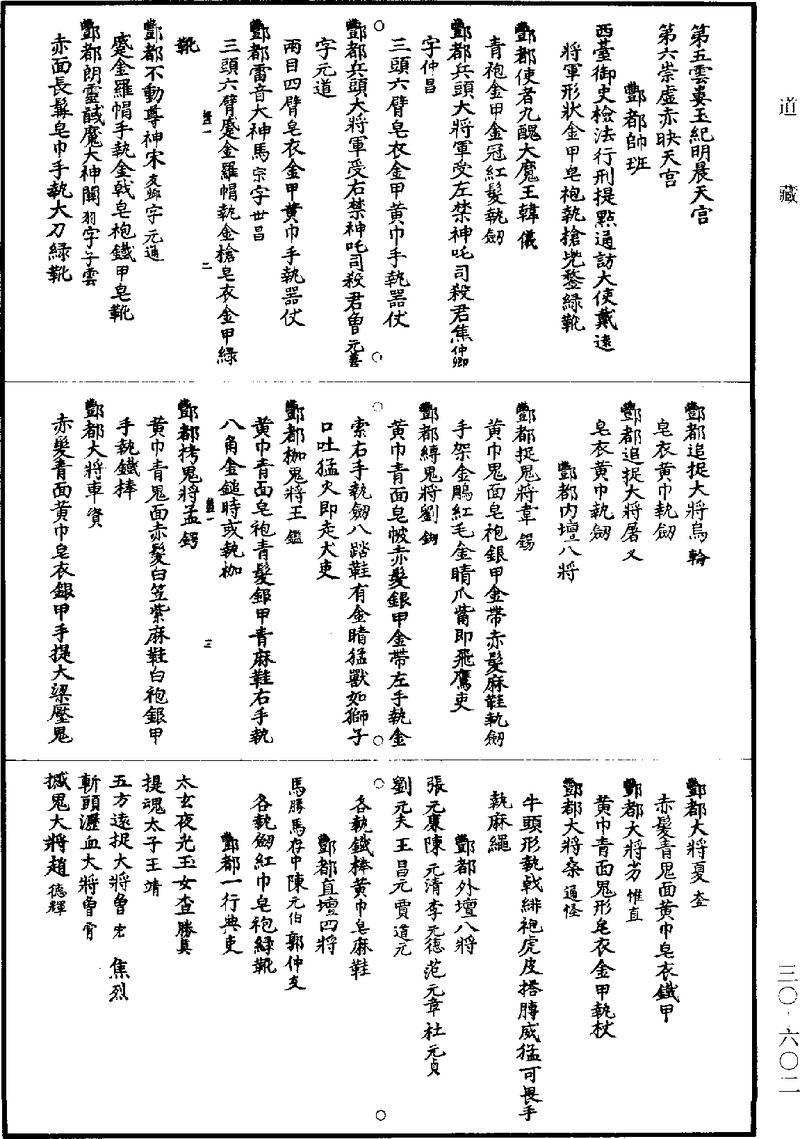 道藏
三〇-六〇二
第五雲婁玉紀明晨天宮
第六崇虛赤映天宮
酆都帥班
西臺御史檢法行刑提點通訪大使戴遠
將軍形狀金甲皂袍執槍兠鍪綠靴
酆都使者九醜大魔王韓儀
青袍金甲金冠紅髮執劒
酆都兵頭大將軍受左禁神吒司殺君焦仲卿
字仲昌
三頭六臂皂衣金甲黃巾手執器仗
酆都兵頭大將軍受右禁神吒司殺君魯元善
字元道
兩目四臂皂衣金甲黃巾手執器仗
酆都雷音大神馬宗字世昌
三頭六臂蹙金羅帽執金槍皂衣金甲綠
靴
酆都不動尊神宋友卿字元通
蹙金羅帽手執金戟皂袍鐵甲皂靴
酆都朗靈馘魔大神關羽字子雲
赤面長髯皂巾手執大刀綠靴
酆都追捉大將烏輪
皂衣黃巾執劒
酆都追捉大將屠乂
皂衣黃巾執劒
酆都內壇八將
酆都捉鬼將韋錫
黃巾鬼面皂袍銀甲金帶赤髮麻鞋執劒
手架金鵰紅毛金睛爪觜即飛鷹吏
酆都縛鬼將劉
黃巾青面皂帔赤髮銀甲金帶左手執金
索右手執劒八踏鞋有金睛猛獸如獅子
口吐猛火即走犬吏
酆都枷鬼將王鑑
黃巾青面皂袍青髮銀甲青麻鞋右手執
八角金鎚時或執枷
酆都拷鬼將孟鍔
黃巾青鬼面赤髮白笠紫麻鞋白袍銀甲
手執鐵棒
酆都大將車資
赤髮青面黃巾皂衣銀甲手提大梁壓鬼
酆都大將夏
赤髮青鬼面黃巾皂衣鐵甲
酆都大將惟直
黃巾青面鬼形皂衣金甲執杖
酆都大將桑通怪
牛頭形執戟緋袍虎皮搭膊威猛可畏手
執麻繩
酆都外壇八將
張元廉陳元清李元德范元章杜元貞
劉元夫王昌元賈道元
各執鐵棒黃巾皂麻鞋
酆都直壇四將
馬勝馬存中陳元伯郭仲支
各執劒紅巾皂袍綠靴
酆都一行典吏
太玄夜光玉女查勝真
提魂太子王靖
五方遠捉大將魯宏 焦烈
斬頭瀝血大將曾霄
撼鬼大將趙德輝